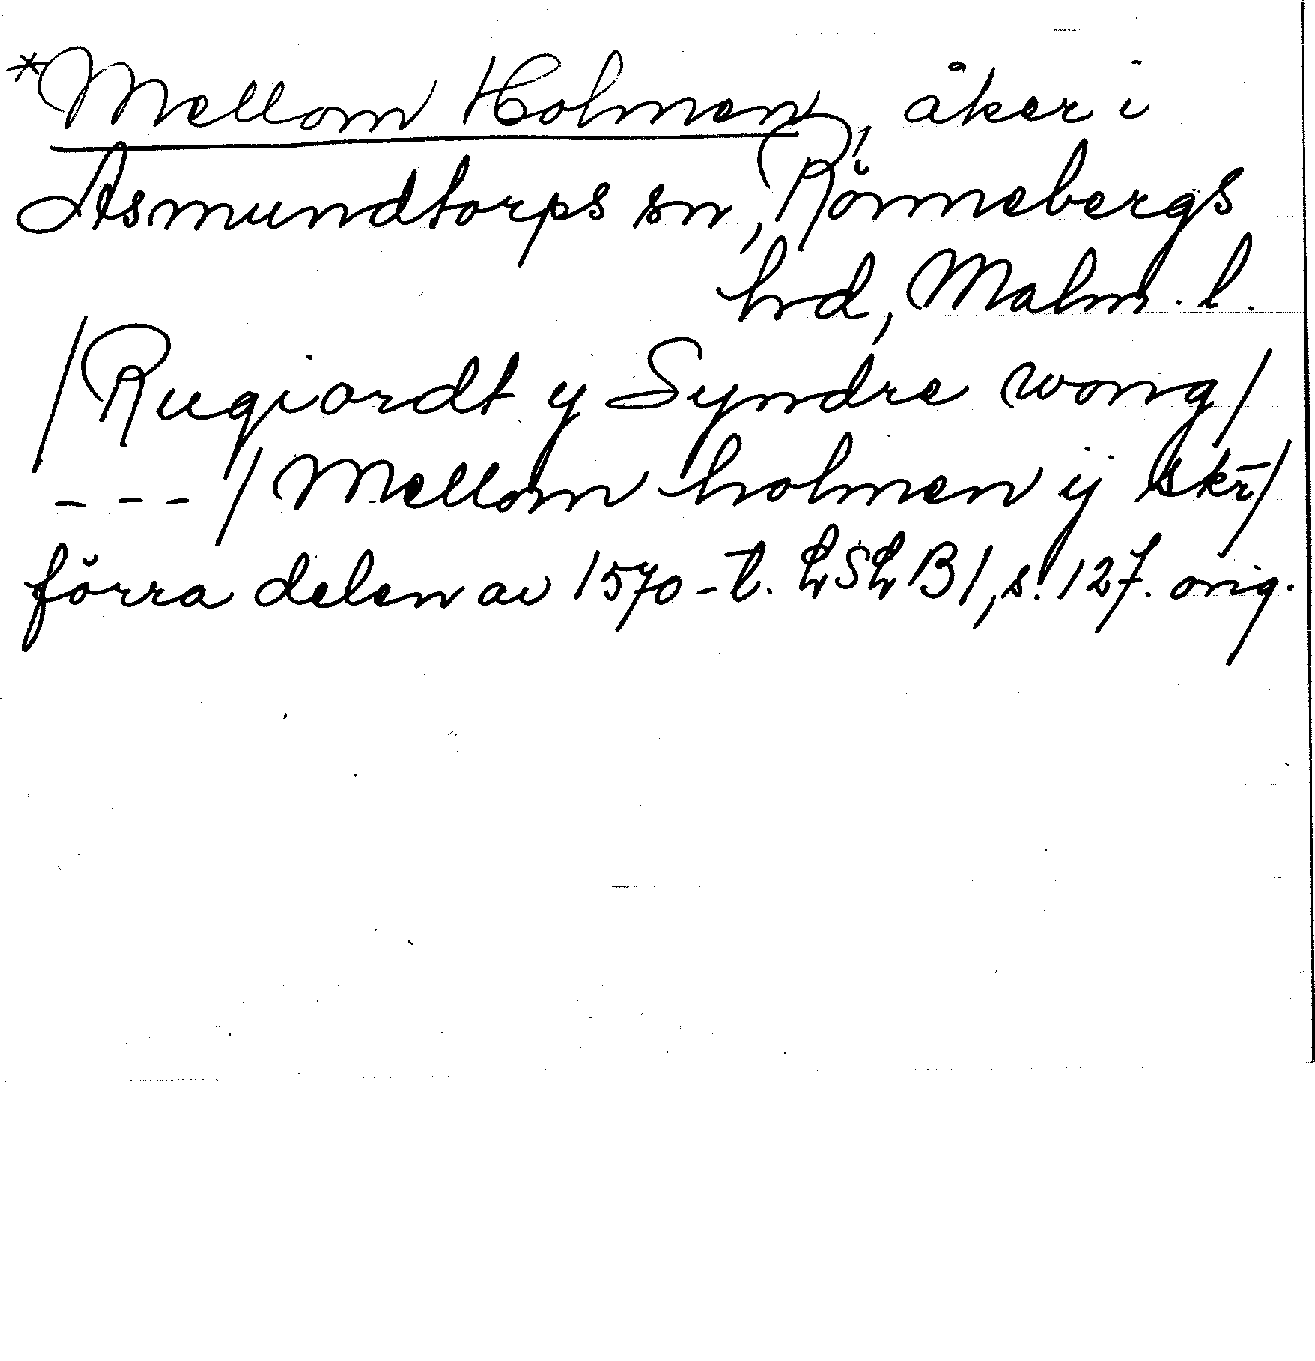 *Mellom Holmen, åker i
Asmundtorps sn, Rönnebergs
hd, Malm. l.
/Rugiordt y Syndre wong/
---/Mellom holmen ij skr/
förra delen av 1570-t. LSLB1, s. 127. orig.